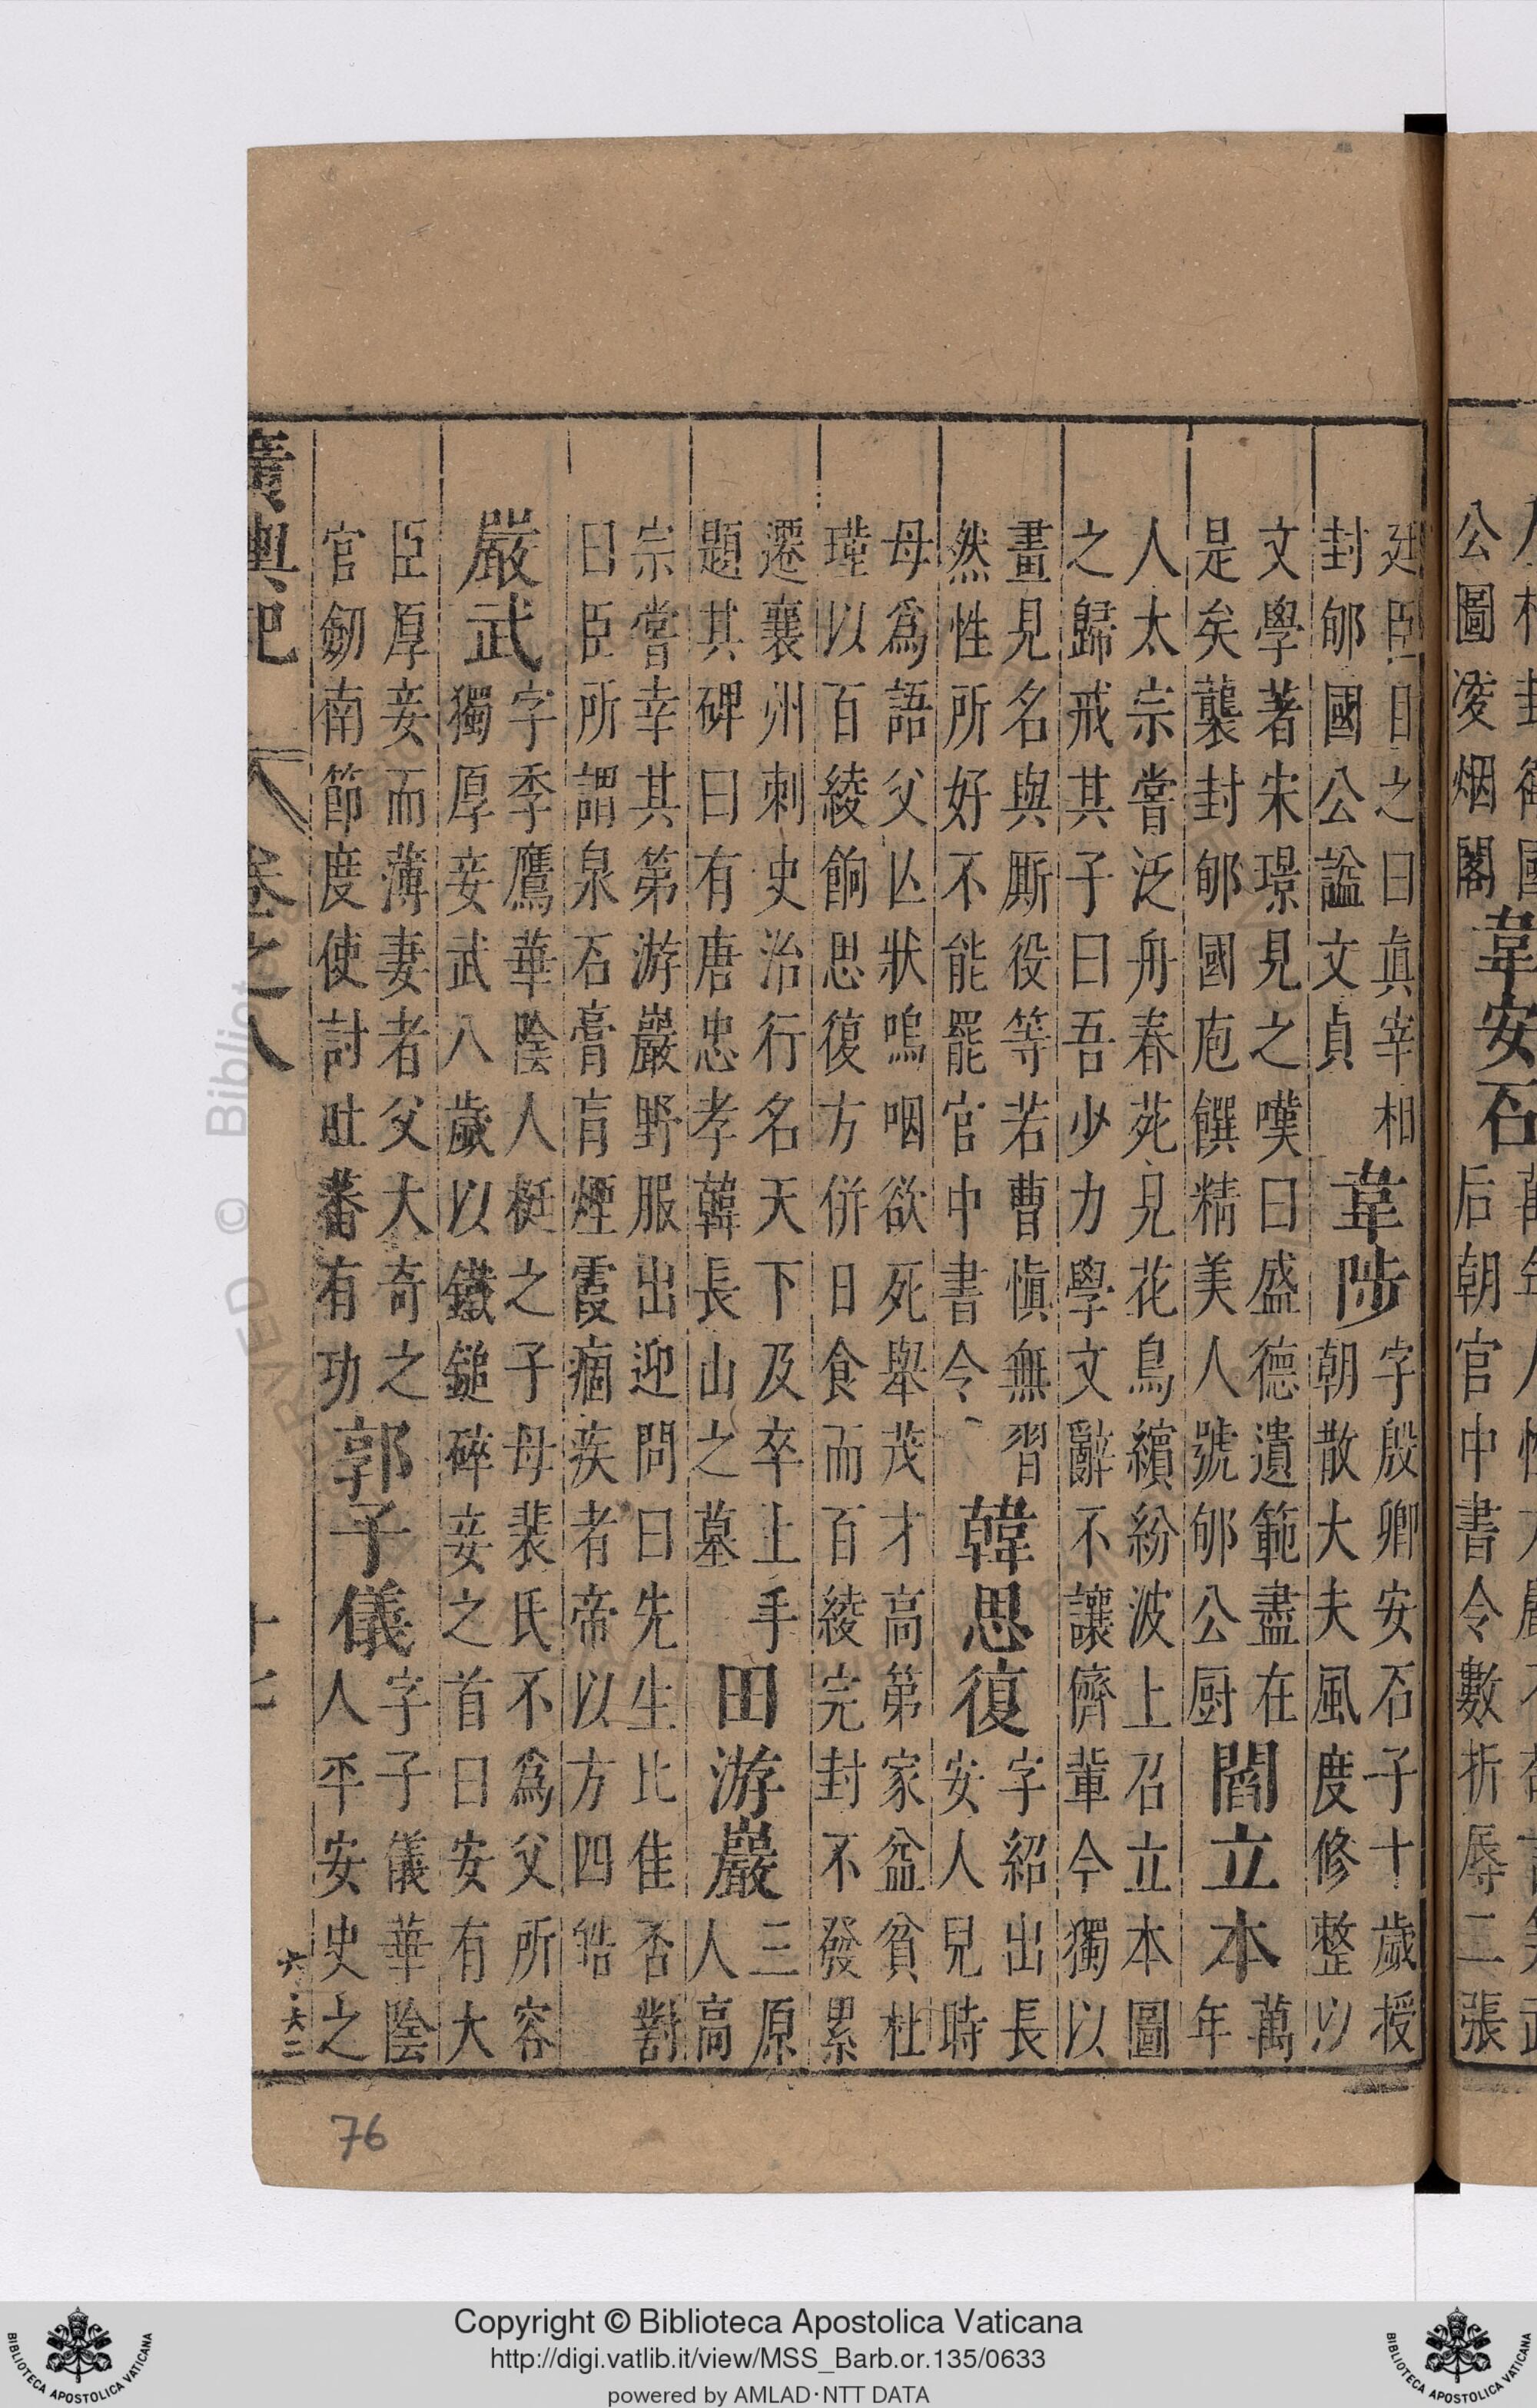 公圖凌烟閣
韋安石
后朝官中書令數折辱二張
廷臣目之曰眞宰相
封郇國公諡文貞
韋陟
字殷卿安石子十歲授
朝散大夫風度修整以
文學著宋璟見之嘆曰盛德遺範盡在
是矣襲封郇國庖饌精美人號郇公厨
閻立本
萬
年
人太宗嘗泛舟春苑見花鳥繽紛波上召立本圖
之歸戒其子曰吾少力學文辭不讓儕輩今獨以
畫見名與厮役等若曹愼無習
然性所好不能罷官中書令
韓思復
字紹出長
安人兒時
母爲語父亾狀嗚咽欲死舉茂才高第家益貧杜
瑾以百綾餉思復方併日食而百綾完封不發累
遷襄州刺史治行名天下及卒上手
題其碑曰有唐忠孝韓長山之墓
田游巖
三原
人高
宗嘗幸其第游巖野服出迎問曰先生比佳否對
曰臣所謂泉石膏肓煙霞痼疾者帝以方四皓
嚴武
字季鷹華陰人挺之子母裴氏不爲父所容
獨厚妾武八歲以鐵鎚碎妾之首曰安有大
臣厚妾而薄妻者父大奇之
官劒南節度使討吐蕃有功
郭子儀
字子儀華陰
人平安史之
廣輿記
卷之八
十七
76
Copyright © Biblioteca Apostolica Vaticana
http://digi.vatlib.it/view/MSS_Barb.or.135/0633
powered by AMLAD·NTT DATA
BIBLIOTECA APOSTOLICA VATICANA
BIBLIOTECA APOSTOLICA VATICANA